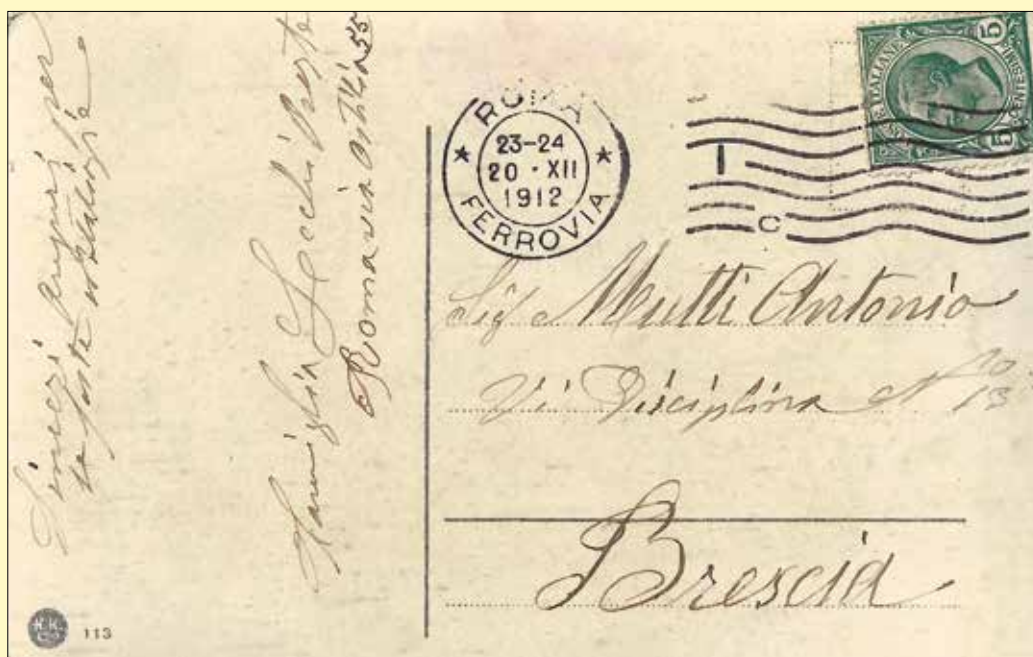 Sinceri Auguri per
le feste natalizie
Famiglia
Roma via
ROMA
23-24
20 · XII
1912
FERROVIA
I
C
POSTE ITALIANE
5
5
Sig Mutti Antonio
Vi Disciplina N 13
Brescia
113